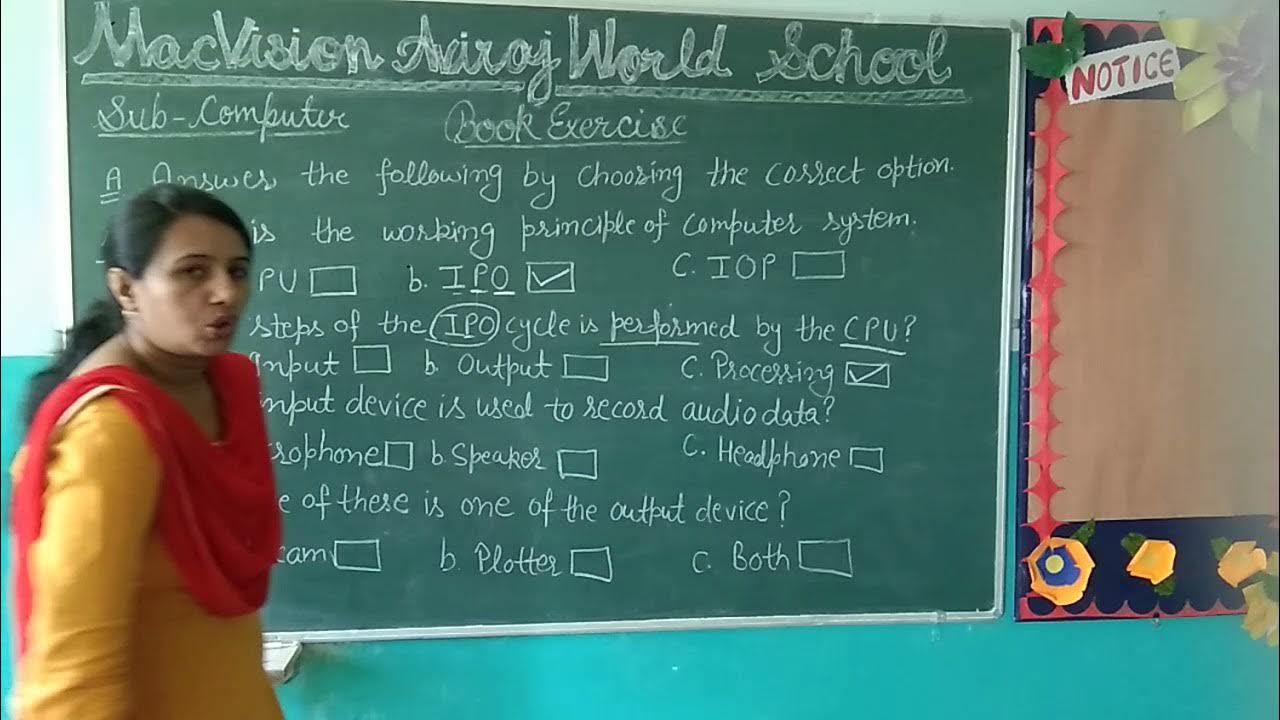 MacVision Aviraj World School
NOTICE
Sub-Computer Book Exercise
A Answer the following by choosing the correct option.
is the working principle of computer system.
PU b. IPO c. IOP
steps of the IPO cycle is performed by the CPU?
Input b. Output c. Processing
input device is used to record audio data?
rophone b. Speaker c. Headphone
e of these is one of the output device?
cam b. Plotter c. Both